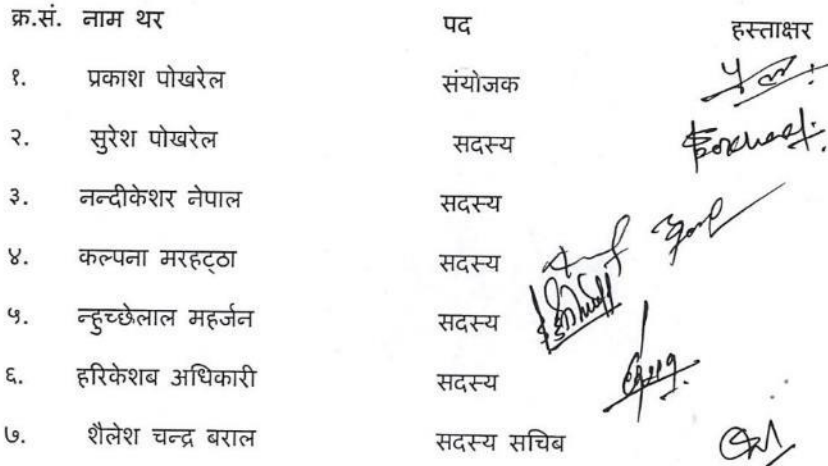 क्र.सं. नाम थर पद हस्ताक्षर
१. प्रकाश पोखरेल संयोजक
२. सुरेश पोखरेल सदस्य
३. नन्दीकेशर नेपाल सदस्य
४. कल्पना मरहट्ठा सदस्य
५. न्हुच्छेलाल महर्जन सदस्य
६. हरिकेशब अधिकारी सदस्य
७. शैलेश चन्द्र बराल सदस्य सचिब